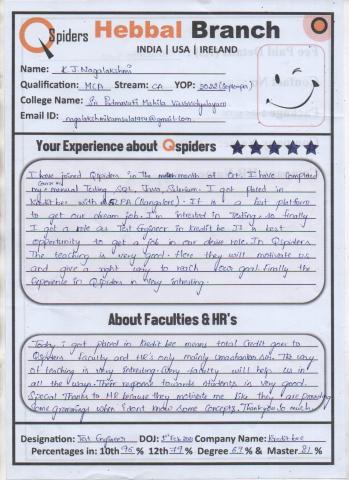 QSpiders Hebbal Branch
INDIA | USA | IRELAND
Name: K.J. Nagalakshmi
Qualification: MCA Stream: CA YOP: 2022 (September)
College Name: Sri Padmavati Mahila Visvavidyalayam
Email ID:
Your Experience about Qspiders
I have joined Qspiders in the month of Oct. I have completed
my manual Testing, SQL, Java, Selenium. I got placed in
Kreditbee with LPA (Bangalore). It is a best platform
to get our dream job. I'm intrested in Testing. so finally
I got a role as Test Engineer in Kreditbee. It is best
opportunity to get a job in our desire role. In Qspiders
The teaching is very good. Here they will motivate us
and give a right way to reach our goal. Finally the
Experience in Qspiders is very intresting.
About Faculties & HR's
Today i got placed in Kredit bee means total Credit goes to
Qspiders faculty and HR's only mainly sir. The way
of teaching is very intresting. Every faculty will help us in
all the ways. Their response towards students is very good.
Special Thanks to HR because they motivate me like they are providing
some grommings when I dont know some concepts. Thank you so much.
Designation: Test Engineer DOJ: 1st Feb Company Name: Kreditbee
Percentages in: 10th 95 % 12th 79 % Degree 69 % & Master 81 %